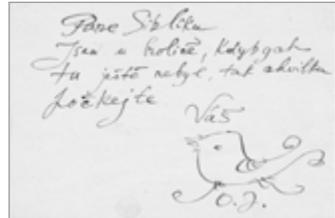 Pane Sibliku
Jsem u holiče, kdybych
tu ještě nebyl, tak chvilku
počkejte
Váš
O.J.